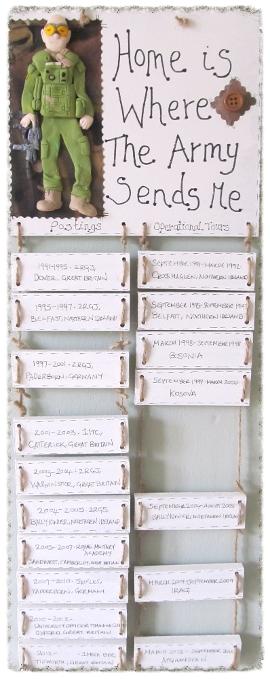 Home is
Where
The Army
Sends Me
Postings
Operational Tours
1991-1995 - 2RGJ,
DOVER, GREAT BRITAIN
1995-1997 - 2RGJ,
BELFAST, NORTHERN IRELAND
1997-2001 - 2RGJ,
PADERBORN, GERMANY
2001-2003 - ITC,
CATTERICK, GREAT BRITAIN
2RGJ,
WARMINSTER, GREAT BRITAIN
2RGJ,
BALLYKINLER, NORTHERN IRELAND
2005-2007 - ROYAL MILITARY
ACADEMY
GREAT BRITAIN
2007-2010 - 
PADERBORN, GERMANY
2010-2012 -
OXFORD, GREAT BRITAIN
2012 -
TIDWORTH, GREAT BRITAIN
SEPTEMBER 1991 - MARCH 1992
CROSSMAGLEN, NORTHERN IRELAND
SEPTEMBER
BELFAST, NORTHERN IRELAND
MARCH 1998 - SEPTEMBER 1998
BOSNIA
SEPTEMBER 1999 - MARCH 2000
KOSOVA
SEPTEMBER
BALLYKINLER, NORTHERN IRELAND
MARCH 2009 - SEPTEMBER 2009
IRAQ
MARCH
AFGHANISTAN